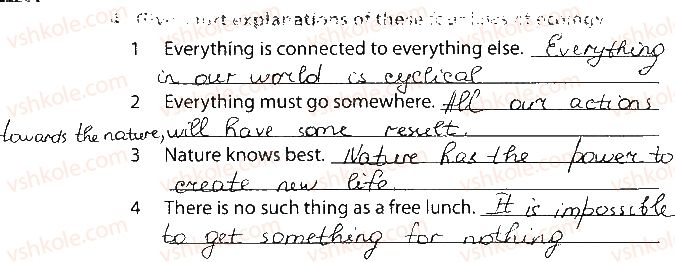 4 Give short explanations of these four laws of ecology
1 Everything is connected to everything else. Everything
in our world is cyclical
2 Everything must go somewhere. All our actions
towards the nature, will have some result.
3 Nature knows best. Nature has the power to
create new life.
4 There is no such thing as a free lunch. It is impossible
to get something for nothing
vshkole.com